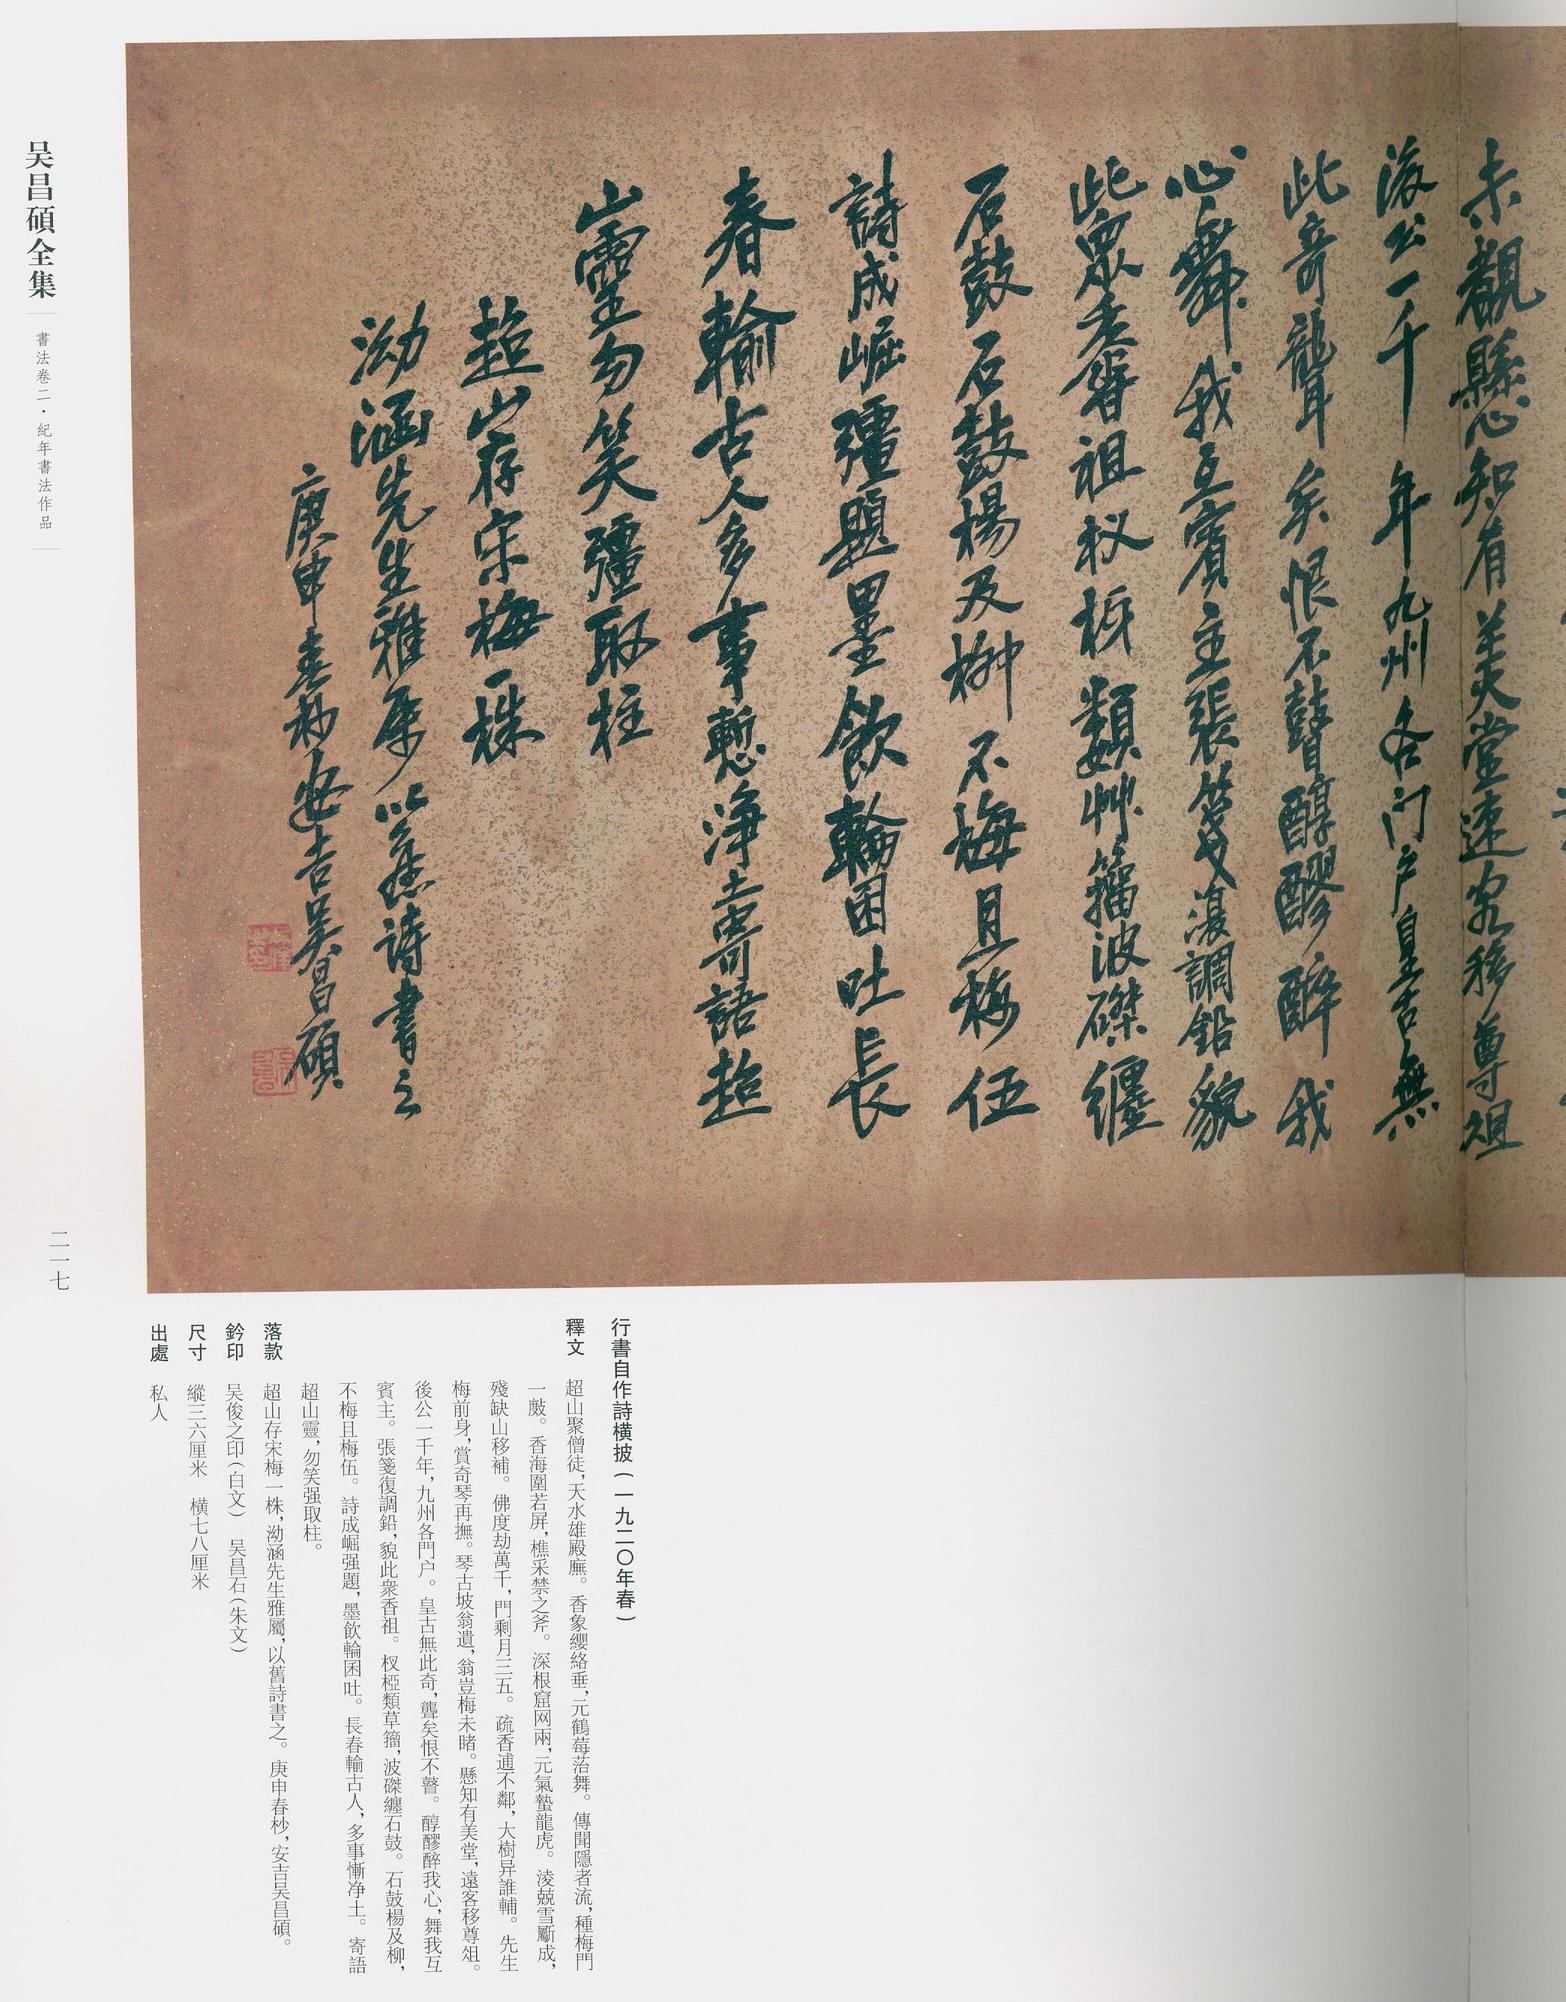 未覩懸知有美堂遠客移尊俎
後公一千年九州各門戶皇古無
此奇聾矣恨不瞽醇醪醉我
心舞我互賓主張箋復調鉛貌
此眾香祖杈枒類艸籀波磔纏
石鼓石鼓楊及柳不梅且梅伍
詩成崛彊題墨飲輪囷吐長
春輸古人多事慙淨土寄語超
山靈勿笑彊取柱
超山存宋梅一株
泑涵先生雅屬以舊詩書之
庚申春杪安吉吴昌碩
吴昌碩全集
書法卷二·紀年書法作品
二一七
行書自作詩横披(一九二〇年春)
釋文 超山聚僧徒,天水雄殿廡。香象纓絡垂,元鶴莓苔舞。傳聞隱者流,種梅門
一敱。香海圍若屏,樵采禁之斧。深根窟网兩,元氣蟄龍虎。淩兢雪斸成,
殘缺山移補。佛度劫萬千,門剩月三五。疏香逋不鄰,大樹异誰輔。先生
梅前身,賞奇琴再撫。琴古坡翁遺,翁豈梅未睹。懸知有美堂,遠客移尊俎。
後公一千年,九州各門户。皇古無此奇,聾矣恨不瞽。醇醪醉我心,舞我互
賓主。張箋復調鉛,貌此衆香祖。杈椏類草籀,波磔纏石鼓。石鼓楊及柳,
不梅且梅伍。詩成崛强題,墨飲輪囷吐。長春輸古人,多事慚净土。寄語
超山靈,勿笑强取柱。
落款 超山存宋梅一株,泑涵先生雅屬,以舊詩書之。庚申春杪,安吉吴昌碩。
鈐印 吴俊之印(白文) 吴昌石(朱文)
尺寸 縱三六厘米 横七八厘米
出處 私人